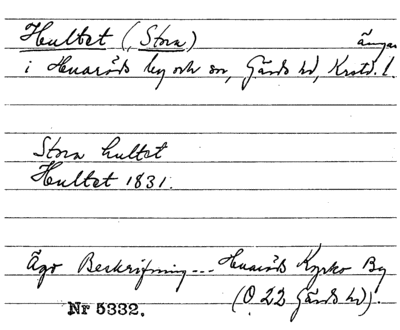 Hultet (, Stora) ängar
i Huaröds by och sn, Gärds hd, Krstd. l.
Stora hultet
Hultet 1831.
Ägo Beskrifning --- Huaröds Kyrko By
Nr 5332. (O 22 Gärds hd).